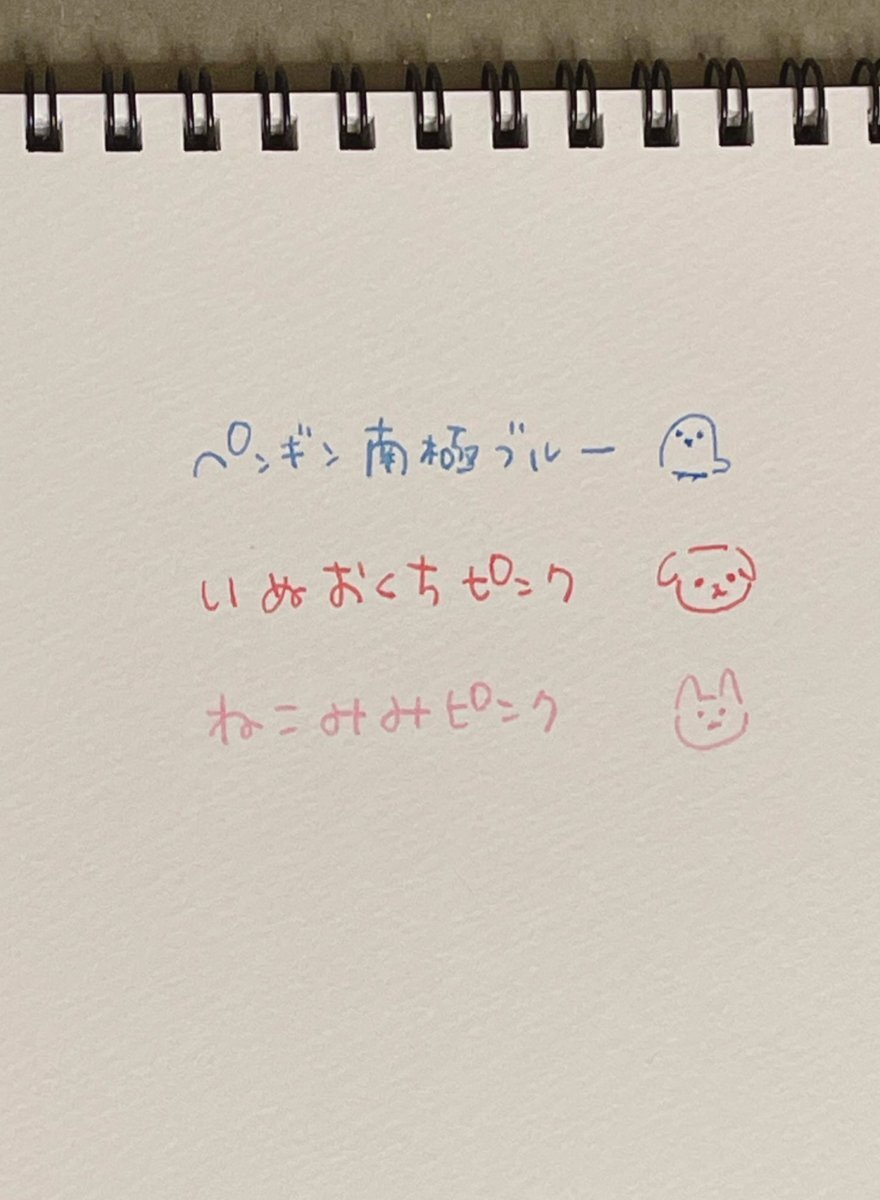 ペンギン南極ブルー
いぬおくちピンク
ねこみみピンク